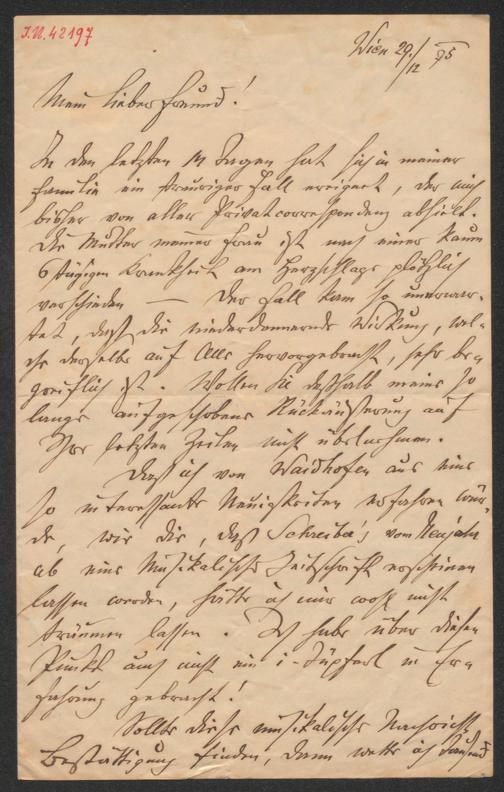 I.N. 42197
Wien 29./12 95
Mein lieber Freund!
In den letzten 14 Tagen hat sich in meiner
Familie ein trauriger Fall ereignet, der mich
bisher von aller Privatcorrespondenz abhielt.
Die Mutter meiner Frau ist nach einer kaum
6 tägigen Krankheit am Herzschlage plötzlich
verschieden — Der Fall kam so unerwar-
tet, daß die niederdonnernde Wirkung, wel-
che derselbe auf Alle hervorgebracht, sehr be-
greiflich ist. Wollen Sie deßhalb meine so
lange aufgeschobene Rückäußerung auf
Ihre letzten Zeilen nicht übelnehmen.
Daß ich von Waidhofen aus eine
so interessante Neuigkeiten erfahren wür-
de, wie die, daß Schreiber's vom Neujahr
ab eine Musikalische Zeitschrift erscheinen
lassen werden, hätte ich mir wohl nicht
träumen lassen. Ich habe über diesen
Punkt auch nicht ein i-Tüpferl in Er-
fahrung gebracht!
Sollte diese musikalische Nachricht
Bestättigung finden, dann wette ich tausend